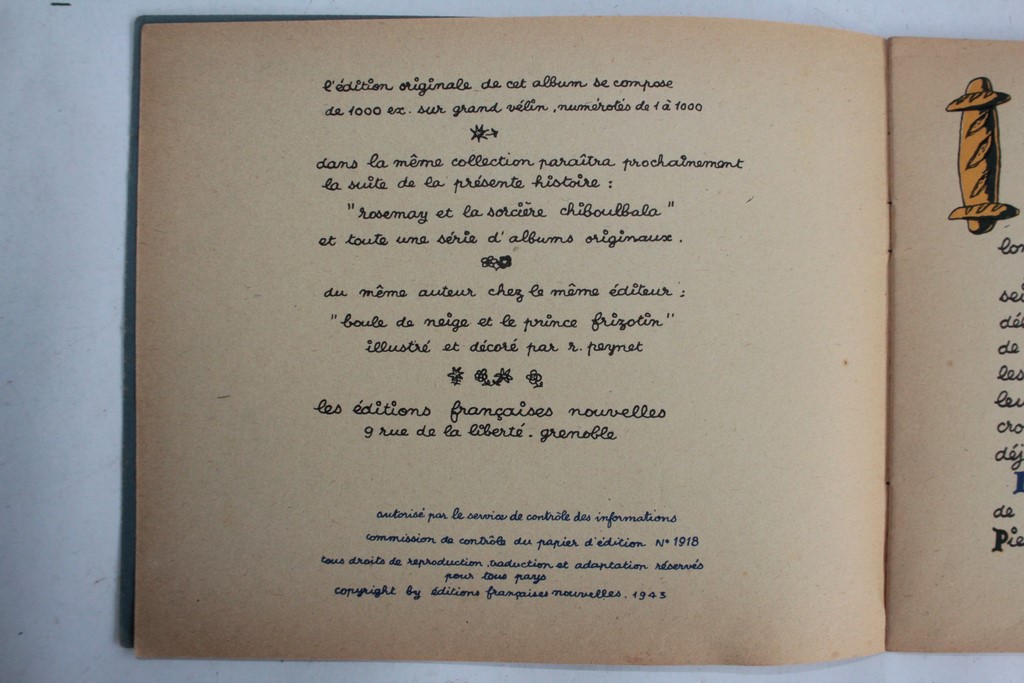 l'édition originale de cet album se compose
de 1000 ex. sur grand vélin, numérotés de 1 à 1000
dans la même collection paraîtra prochaînement
la suite de la présente histoire :
"rosemay et la sorcière chiboulbala"
et toute une série d'albums originaux.
du même auteur chez le même éditeur :
"boule de neige et le prince frizotin"
illustré et décoré par r. peynet
les éditions françaises nouvelles
9 rue de la liberté. grenoble
autorisé par le service de contrôle des informations
commission de contrôle du papier d'édition N° 1918
tous droits de reproduction, traduction et adaptation réservés
pour tous pays
copyright by éditions françaises nouvelles. 1943
lon
sei
dé
de
les
leu
cro
déj
de
Pie